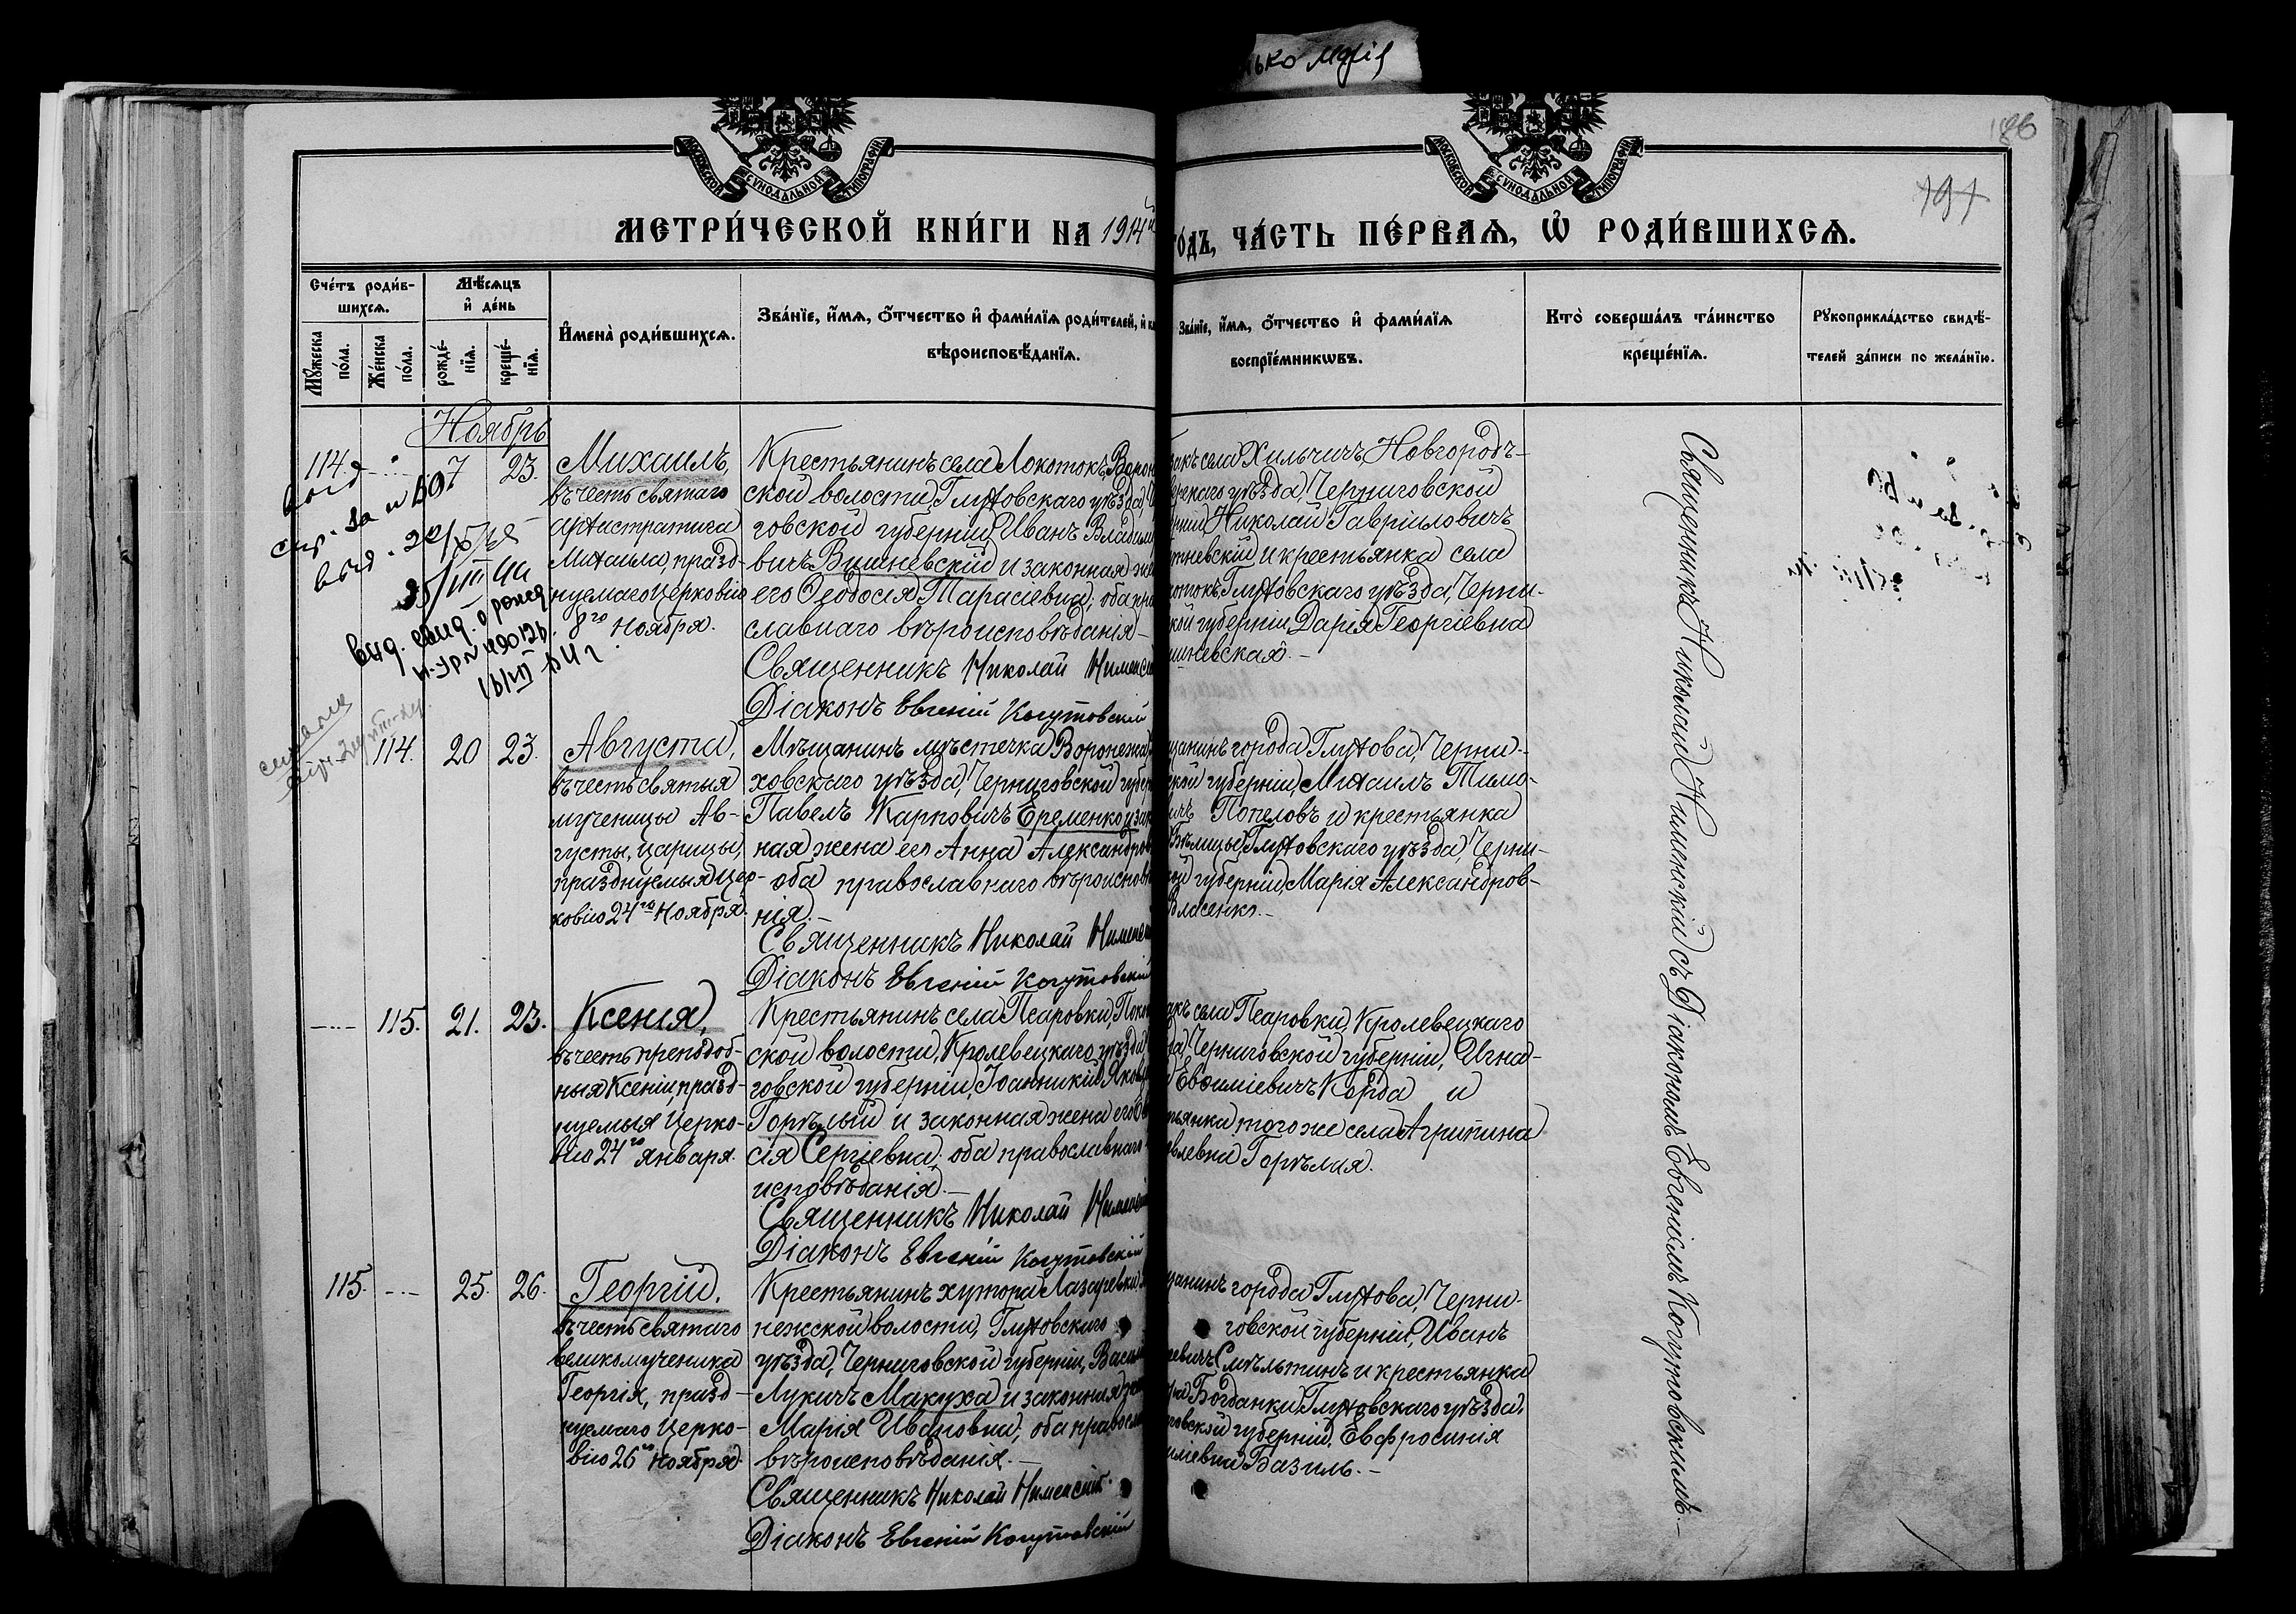 ько Марія
186
191
МОСКОВСКОЙ СѴНОДАЛЬНОЙ ТИПОГРАФІИ
МОСКОВСКОЙ СѴНОДАЛЬНОЙ ТИПОГРАФІИ
МЕТРИ́ЧЕСКОЙ КНИ́ГИ НА 1914й
ГО́ДЪ, ЧА́СТЬ ПЕ́РВАѦ, Ѡ҆ РОДИ́ВШИХСѦ.
Сче́тъ роди́в-
шихсѧ.
Мꙋжеска по́ла.
Же́нска по́ла.
Мѣ́сѧцъ
и҆ де́нь
рожде́-
нїѧ.
креще́-
нїѧ.
И҆мена̀ роди́вшихсѧ.
Зва́нїе, и҆́мѧ, ѻ҆́тчество и҆ фами́лїѧ роди́телей, и҆
вѣроисповѣ́данїѧ.
Зва́нїе, и҆́мѧ, ѻ҆́тчество и҆ фами́лїѧ
воспрїе́мникѡвъ.
Кто̀ соверша́лъ та́инство
креще́нїѧ.
Рꙋкоприкла́дство свидѣ́-
телей за́писи по жела́нїю.
Ноябрь
114.
7
23.
Михаилъ,
въ честь святаго
архистратига
Михаила, празд-
нуемаго Церковію
8го ноября.
Крестьянинъ села Локотокъ, Ворон
ской волости, Глуховскаго уѣзда,
говской губерніи, Иванъ Владим
вичъ Вишневскій и законная же
его Ѳеодосія Тарасіевна; оба пра
славнаго вѣроисповѣданія.-
Священникъ Николай
Діаконъ Евгеній Когутовскій
закъ села Хильчичъ, Новгородъ-
верскаго уѣзда, Черниговской
рніи, Николай Гавріиловичъ
шневскій и крестьянка села
котокъ, Глуховскаго уѣзда, Черни-
кой губерніи, Дарія Георгіевна
шневская.-
вид. свид. о рожд
114.
20
23.
Августа,
въ честь святыя
мученицы Ав-
густы, царицы,
празднуемыя Цер-
ковію 24го Ноября.
Мѣщанинъ мѣстечка Воронежа,
ховскаго уѣзда, Черниговской губер
Павелъ Карповичъ Еременко и зак
ная жена его Анна Александров
- оба православнаго вѣроисповѣ
нія.-
Священникъ Николай
Діаконъ Евгеній Когутовскій
щанинъ города Глухова, Черни-
ской губерніи, Михаилъ Тимо-
ичъ Попеловъ и крестьянка
Бѣлицы, Глуховскаго уѣзда, Черни-
ой губерніи, Марія Александров-
Власенко.-
115.
21.
23.
Ксенія,
въ честь преподоб-
ныя Ксеніи, празд-
нуемыя Церко-
вію 24го января.
Крестьянинъ села Псаровки,
ской волости, Кролевецкаго уѣзда,
говской губерніи, Іоанникій Яков
Горѣлый и законная жена его
сія Сергіевна; оба православнаго
исповѣданія.-
Священникъ Николай
Діаконъ Евгеній Когутовскій
акъ села Псаровки, Кролевецкаго
да, Черниговской губерніи, Игна-
Евѳиміевичъ Корда и
тьянка того же села Агрипина
овлевна Горѣлая.
115.
25.
26.
Георгій,
въ честь святаго
великомученика
Георгія, празд-
нуемаго Церко-
вію 26го Ноября.
Крестьянинъ хутора Лазаревки,
нежской волости, Глуховскаго
уѣзда, Черниговской губерніи, Васил
Лукичъ Макуха и законная же
Марія Ивановна; оба правосла
вѣроисповѣданія.-
Священникъ Николай
Діаконъ Евгеній Когутовскій
щанинъ города Глухова, Черни-
говской губерніи, Иванъ
евичъ Смѣльтинъ и крестьянка
Богданки, Глуховскаго уѣзда,
говской губерніи, Евфросинія
иліевна Базиль.-
Священникъ Николай съ Діакономъ Евгеніемъ Когутовскимъ.-